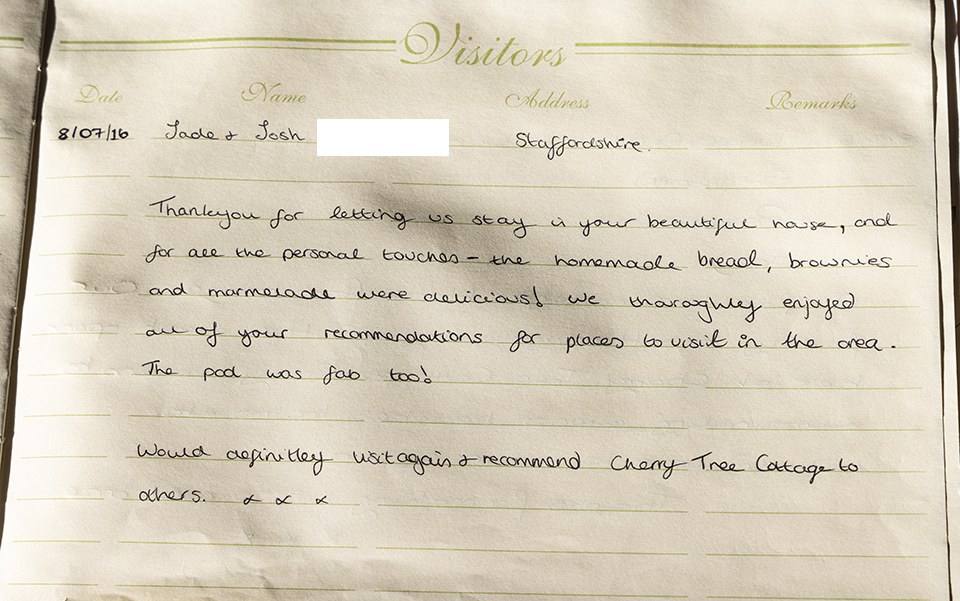 Visitors
Date Name Address Remarks
8/07/16 Jade & Josh Staffordshire.
Thankyou for letting us stay in your beautiful house, and
for all the personal touches - the homemade bread, brownies
and marmelade were delicious! We thoroughley enjoyed
all of your recommendations for places to visit in the area.
The pod was fab too!
Would definitley visit again & recommend Cherry Tree Cottage to
others. x x x